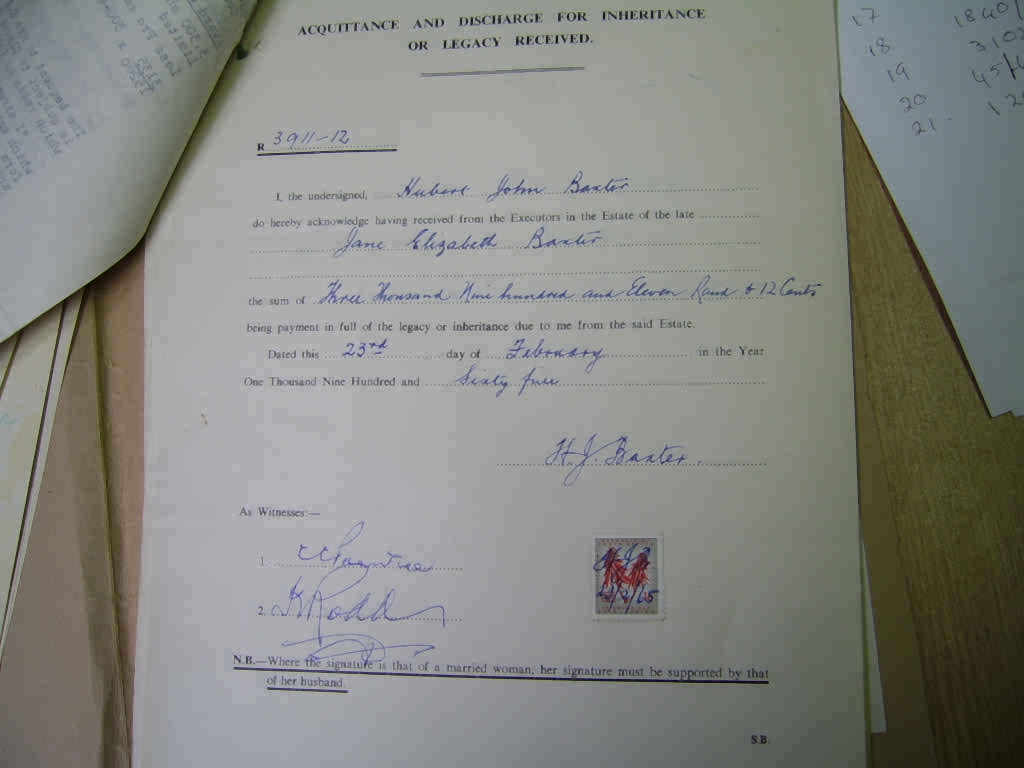 ACQUITTANCE AND DISCHARGE FOR INHERITANCE
OR LEGACY RECEIVED.
R 3911-12
I, the undersigned, Hubert John Baxter
do hereby acknowledge having received from the Executors in the Estate of the late
Jane Elizabeth Baxter
the sum of Three Thousand Nine hundred and Eleven Rand & 12 Cents
being payment in full of the legacy or inheritance due to me from the said Estate.
Dated this 23rd day of February in the Year
One Thousand Nine Hundred and Sixty five
H. J. Baxter.
As Witnesses:—
1.
2. K Rodd
N.B.—Where the signature is that of a married woman, her signature must be supported by that
of her husband.
S.B.
17 1840/
18
19 45/
20
21.